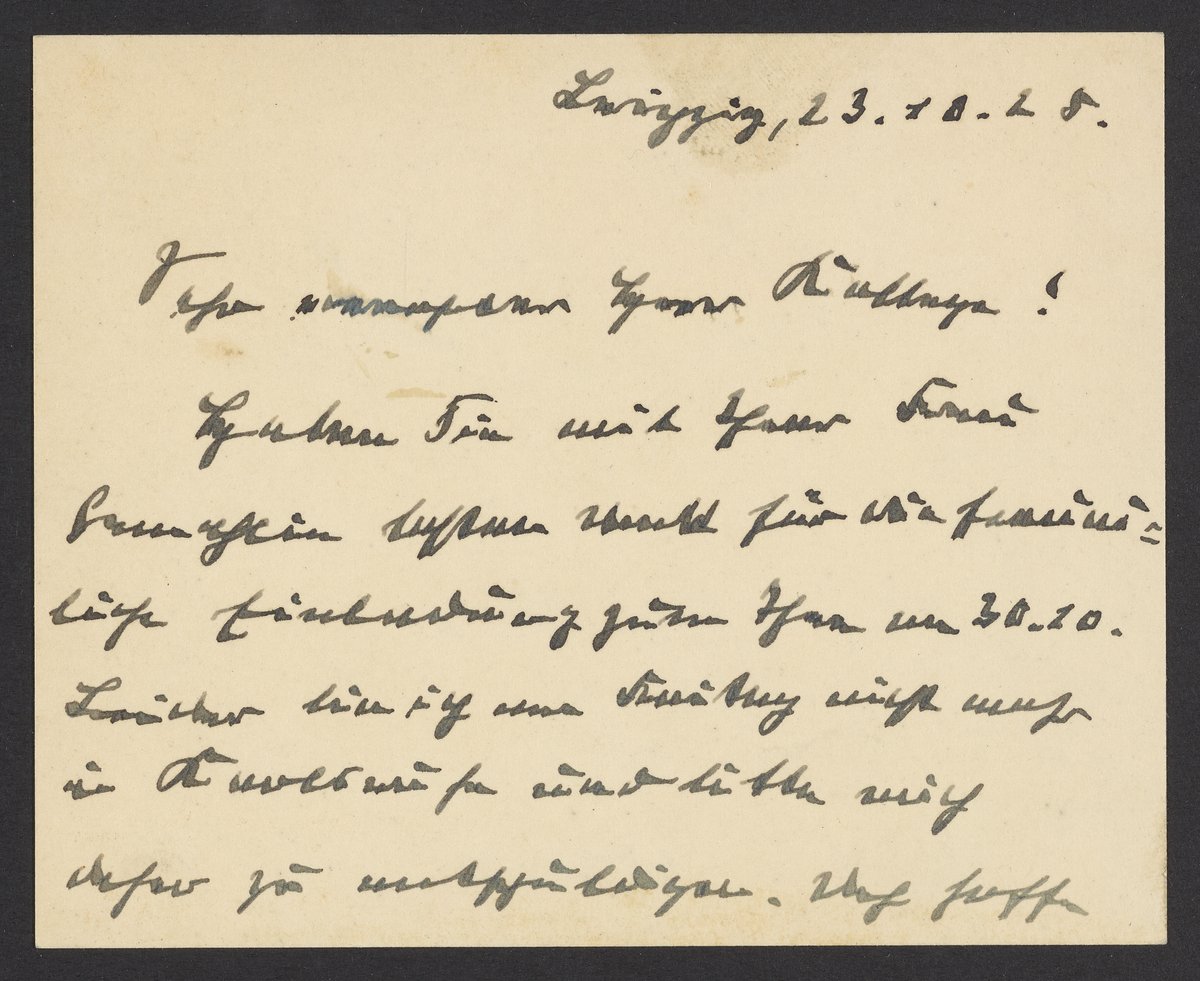 Leipzig, 23.10.28.
Sehr verehrter Herr Kollege!
Haben Sie mit Ihrer Frau
Gemahlin besten Dank für die freund-
liche Einladung zum Thee am 30.10.
Leider bin ich am Freitag nicht mehr
in Karlsruhe und bitte mich
daher zu entschuldigen. Doch hoffe